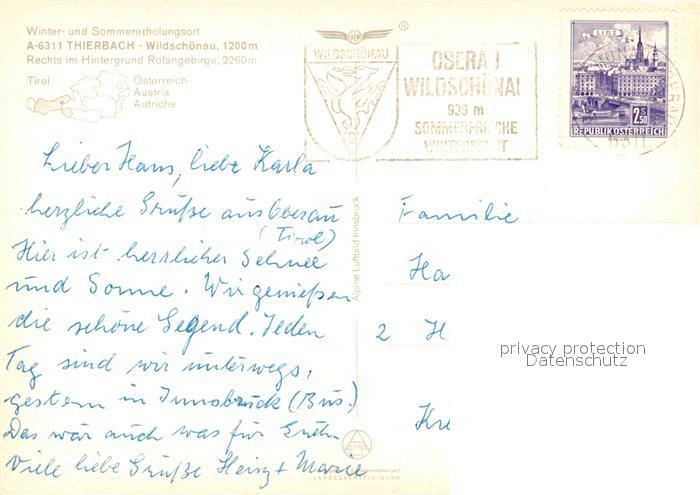 Winter- und Sommererholungsort
A-6311 THIERBACH - Wildschönau, 1200 m
Rechts im Hintergrund Rofangebirge, 2260 m
Tirol
Österreich
Austria
Autriche
®
WILDSCHÖNAU
OBERAU
WILDSCHÖNAU
936 m
SOMMERFRISCHE
WINTERSPORT
LINZ
2.50
REPUBLIK ÖSTERREICH
Lieber Hans, liebe Karla
herzliche Grüße aus Oberau
(Tirol)
Hier ist herrlicher Schnee
und Sonne. Wir genießen
die schöne Gegend. Jeden
Tag sind wir unterwegs,
gestern in Innsbruck (Bus.)
Das wär auch was für
Viele liebe Grüße Heinz +
Alpine Luftbild Innsbruck
LANDESVERTEIDIGUNG
Familie
Ha
2 H
Kre
privacy protection
Datenschutz